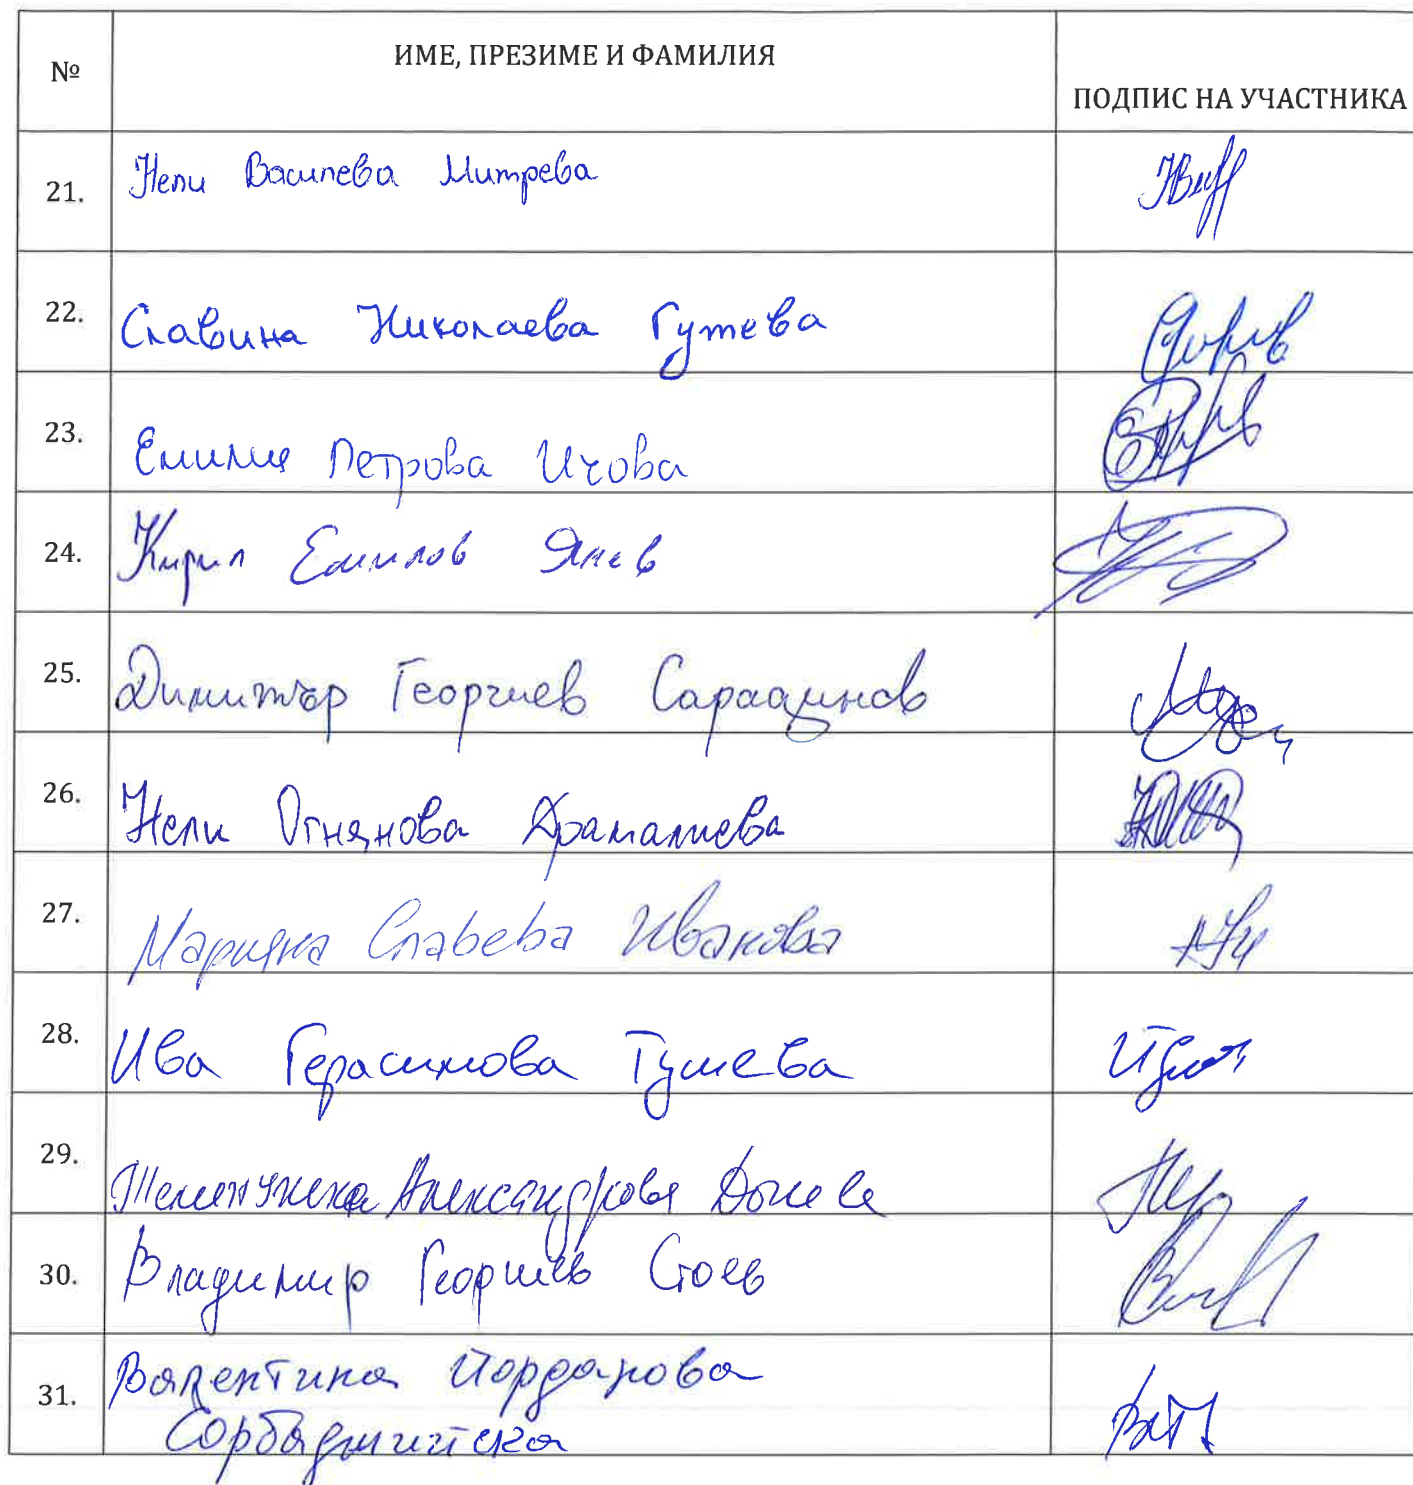 № ИМЕ, ПРЕЗИМЕ И ФАМИЛИЯ ПОДПИС НА УЧАСТНИКА
21. Нели Василева Митрева
22. Славина Николаева Гутева
23. Емилия Петрова Ичова
24. Кирил Емилов Янев
25. Димитър Георгиев Сараджинов
26. Нели Огнянова Драмалиева
27. Марияна Славева Иванова
28. Ива Герасимова Гушева
29. Теменужка Александрова
30. Владимир Георгиев Стоев
31. Валентина Йорданова